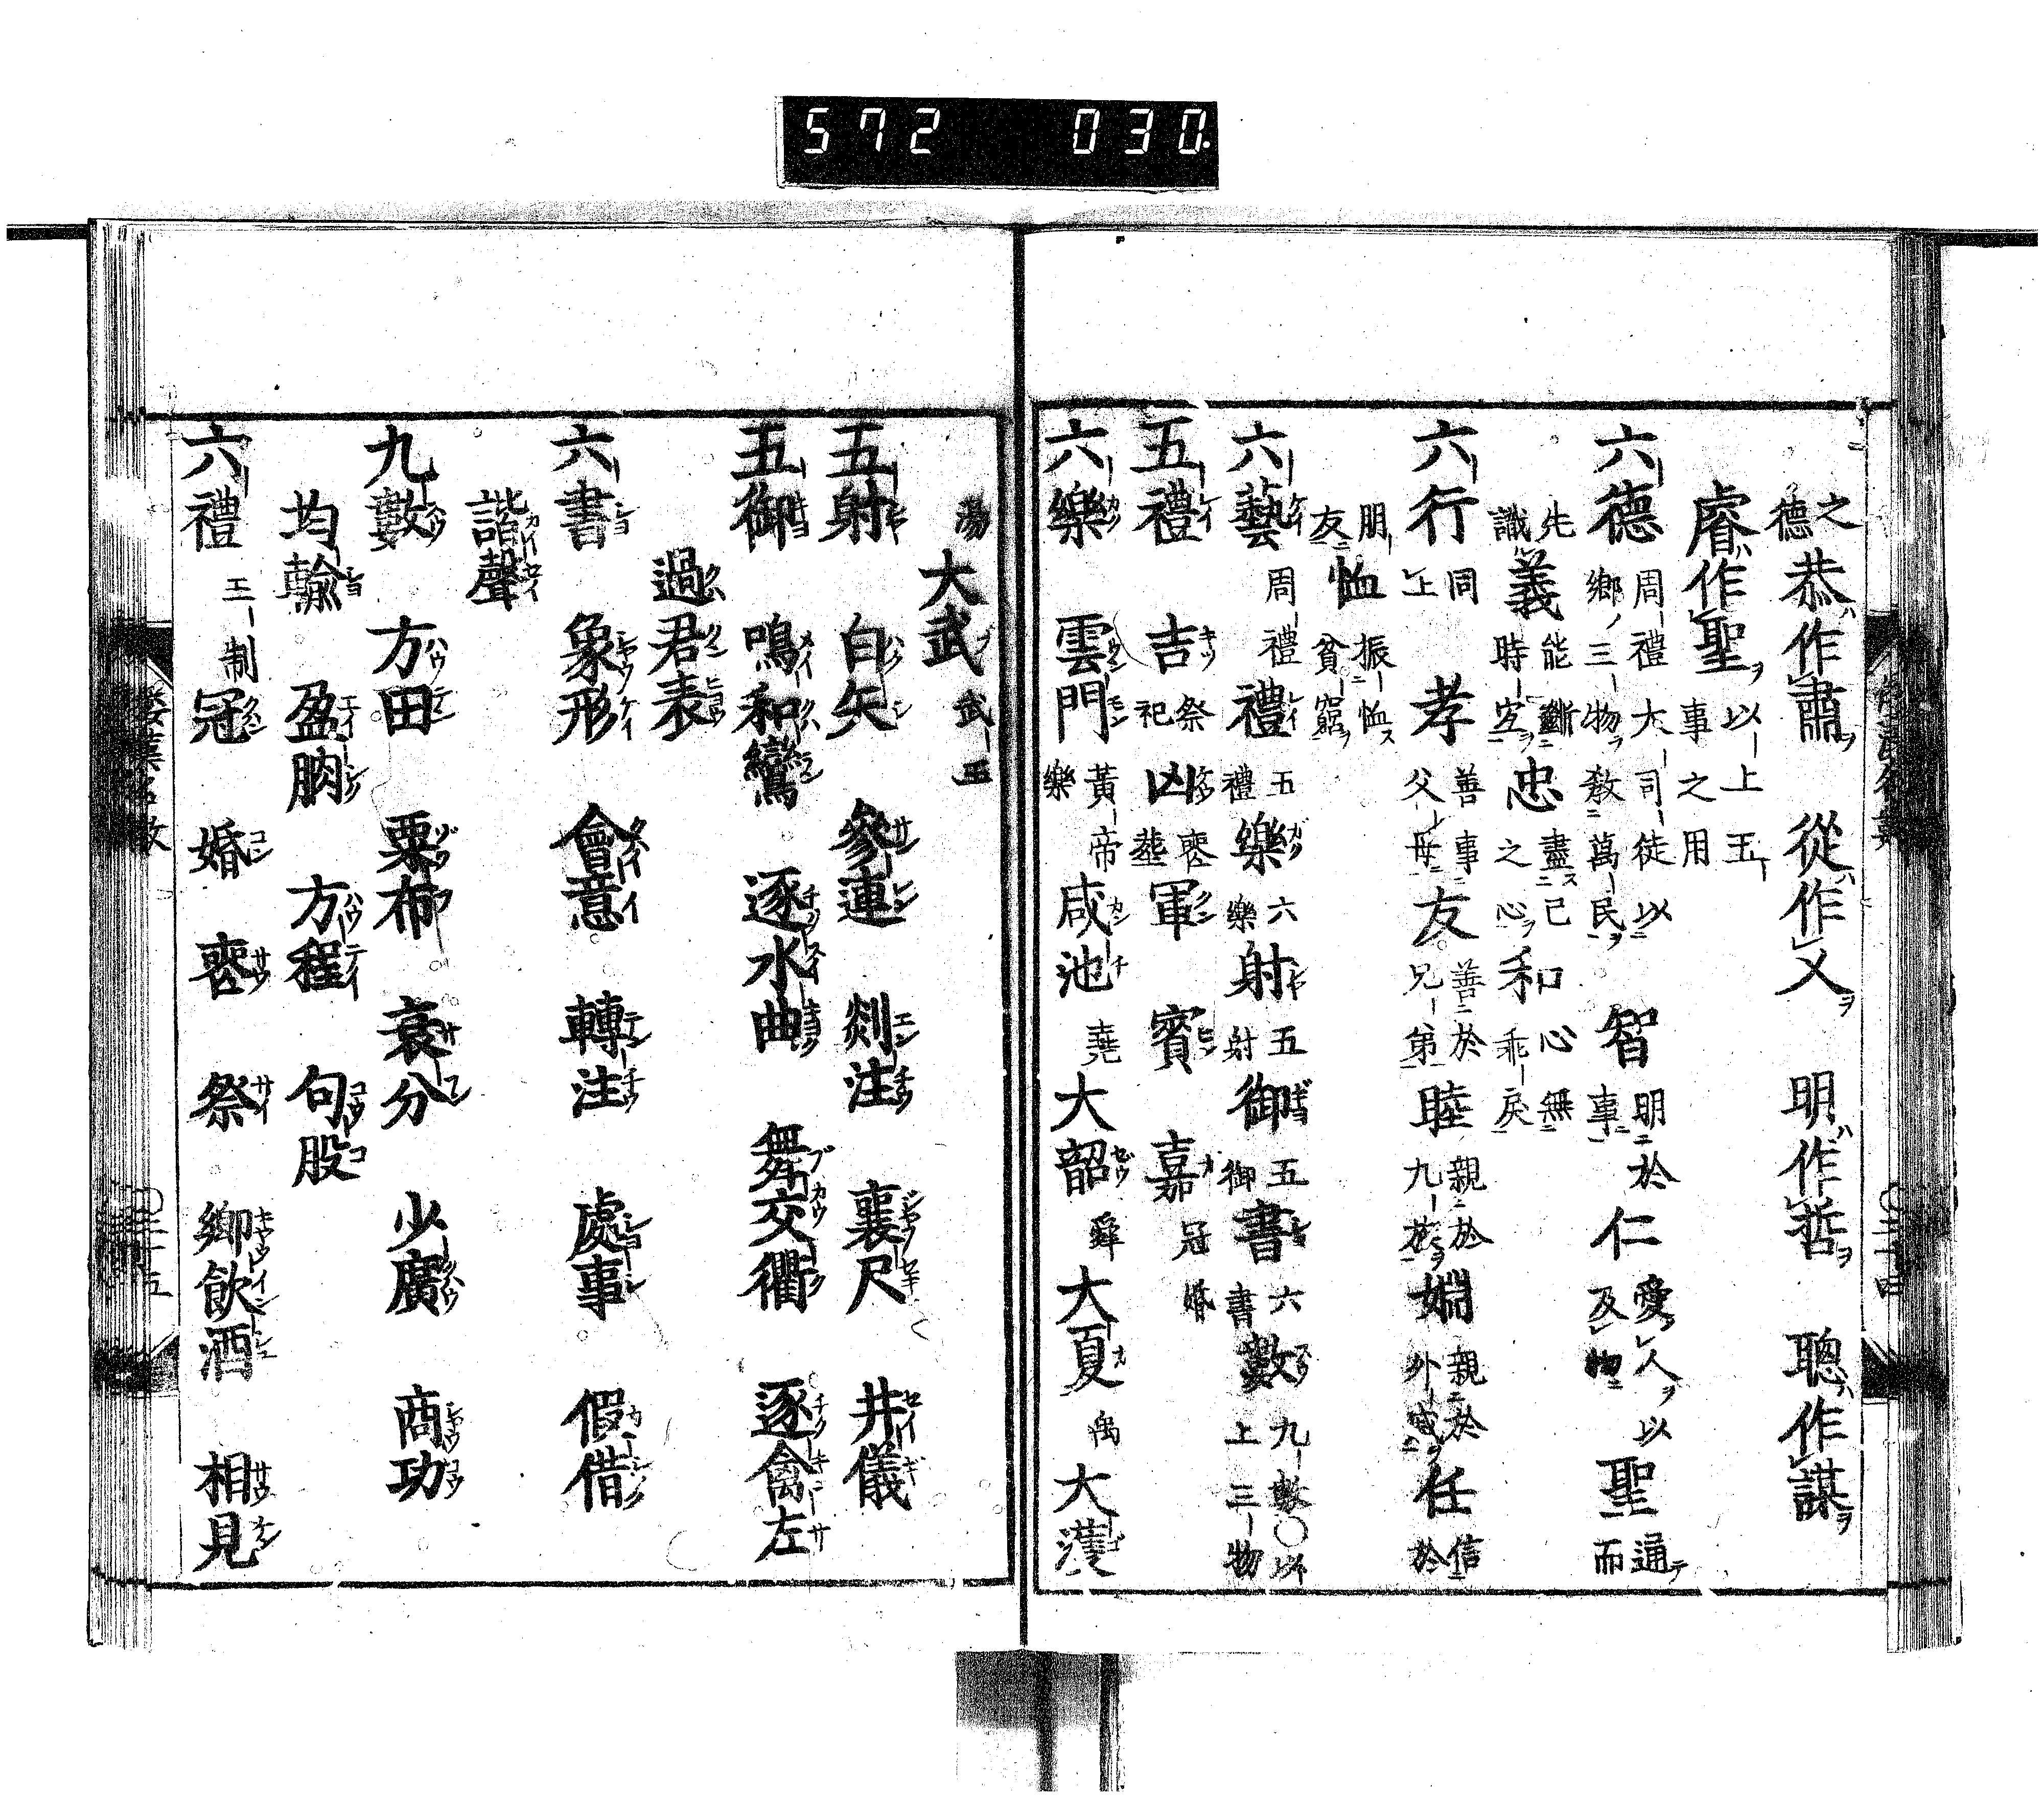 572 030
之德 恭作肅 從作乂 明作哲 聰作謀
睿作聖 以上五事之用
六德 周禮大司徒以鄉三物教萬民 智 明於事 仁 愛人以及物 聖 通而
先識 義 能斷時宜 忠 盡己之心 和 心無乖戾
六行 同上 孝 善事父母 友 善於兄弟 睦 親於九族 婣 親於外戚 任 信於
朋友 恤 振恤貧窮
六藝 周禮 禮 五禮 樂 六樂 射 五射 御 五御 書 六書 數 九數○以上三物
五禮 吉 祭祀 凶 喪葬 軍 賓 嘉 冠婚
六樂 雲門 黃帝樂 咸池 堯 大韶 舜 大夏 禹 大濩
湯 大武 武王
五射 白矢 參連 剡注 襄尺 井儀
五御 鳴和鸞 逐水曲 舞交衢 逐禽左
過君表
六書 象形 會意 轉注 處事 假借
諧聲
九數 方田 粟布 衰分 少廣 商功
均輸 盈朒 方程 句股
六禮 王制 冠 婚 喪 祭 鄉飲酒 相見